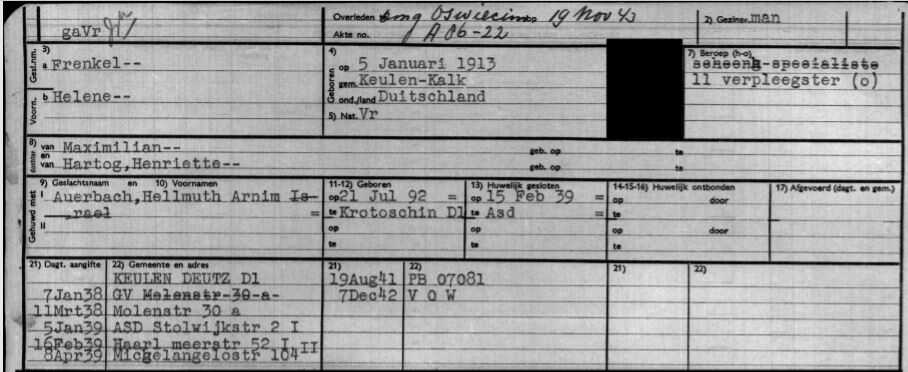 gaVr
Overleden omg Oswiecim op 19 Nov 43
Akte no. A 86-22
2) Gezinsv. man
3) Gesl.nm. a Frenkel--
Voorn. b Helene--
4) Geboren op 5 Januari 1913
gem. Keulen-Kalk
ond./land Duitschland
5) Nat. Vr
7) Beroep (h-o)
scheenh-specialiste
11 verpleegster (o)
8) dochter van Maximilian--
en
van Hartog,Henriette--
geb. op te
geb. op te
9) Geslachtsnaam en 10) Voornamen
11-12) Geboren
13) Huwelijk gesloten
14-15-16) Huwelijk ontbonden
17) Afgevoerd (dagt. en gem.)
Gehuwd met I Auerbach,Hellmuth Arnim Is- op 21 Jul 92 = op 15 Feb 39 = op door
rael = te Krotoschin Dl te Asd = te
II op op op door
te te te
21) Dagt. aangifte 22) Gemeente en adres 21) 22) 21) 22)
KEULEN DEUTZ Dl 19Aug41 PB 07081
7Jan38 GV Molenstr-30-a- 7Dec42 V O W
11Mrt38 Molenstr 30 a
5Jan39 ASD Stolwijkstr 2 I
16Feb39 Haarl meerstr 52 I
8Apr39 Michelangelostr 104 II